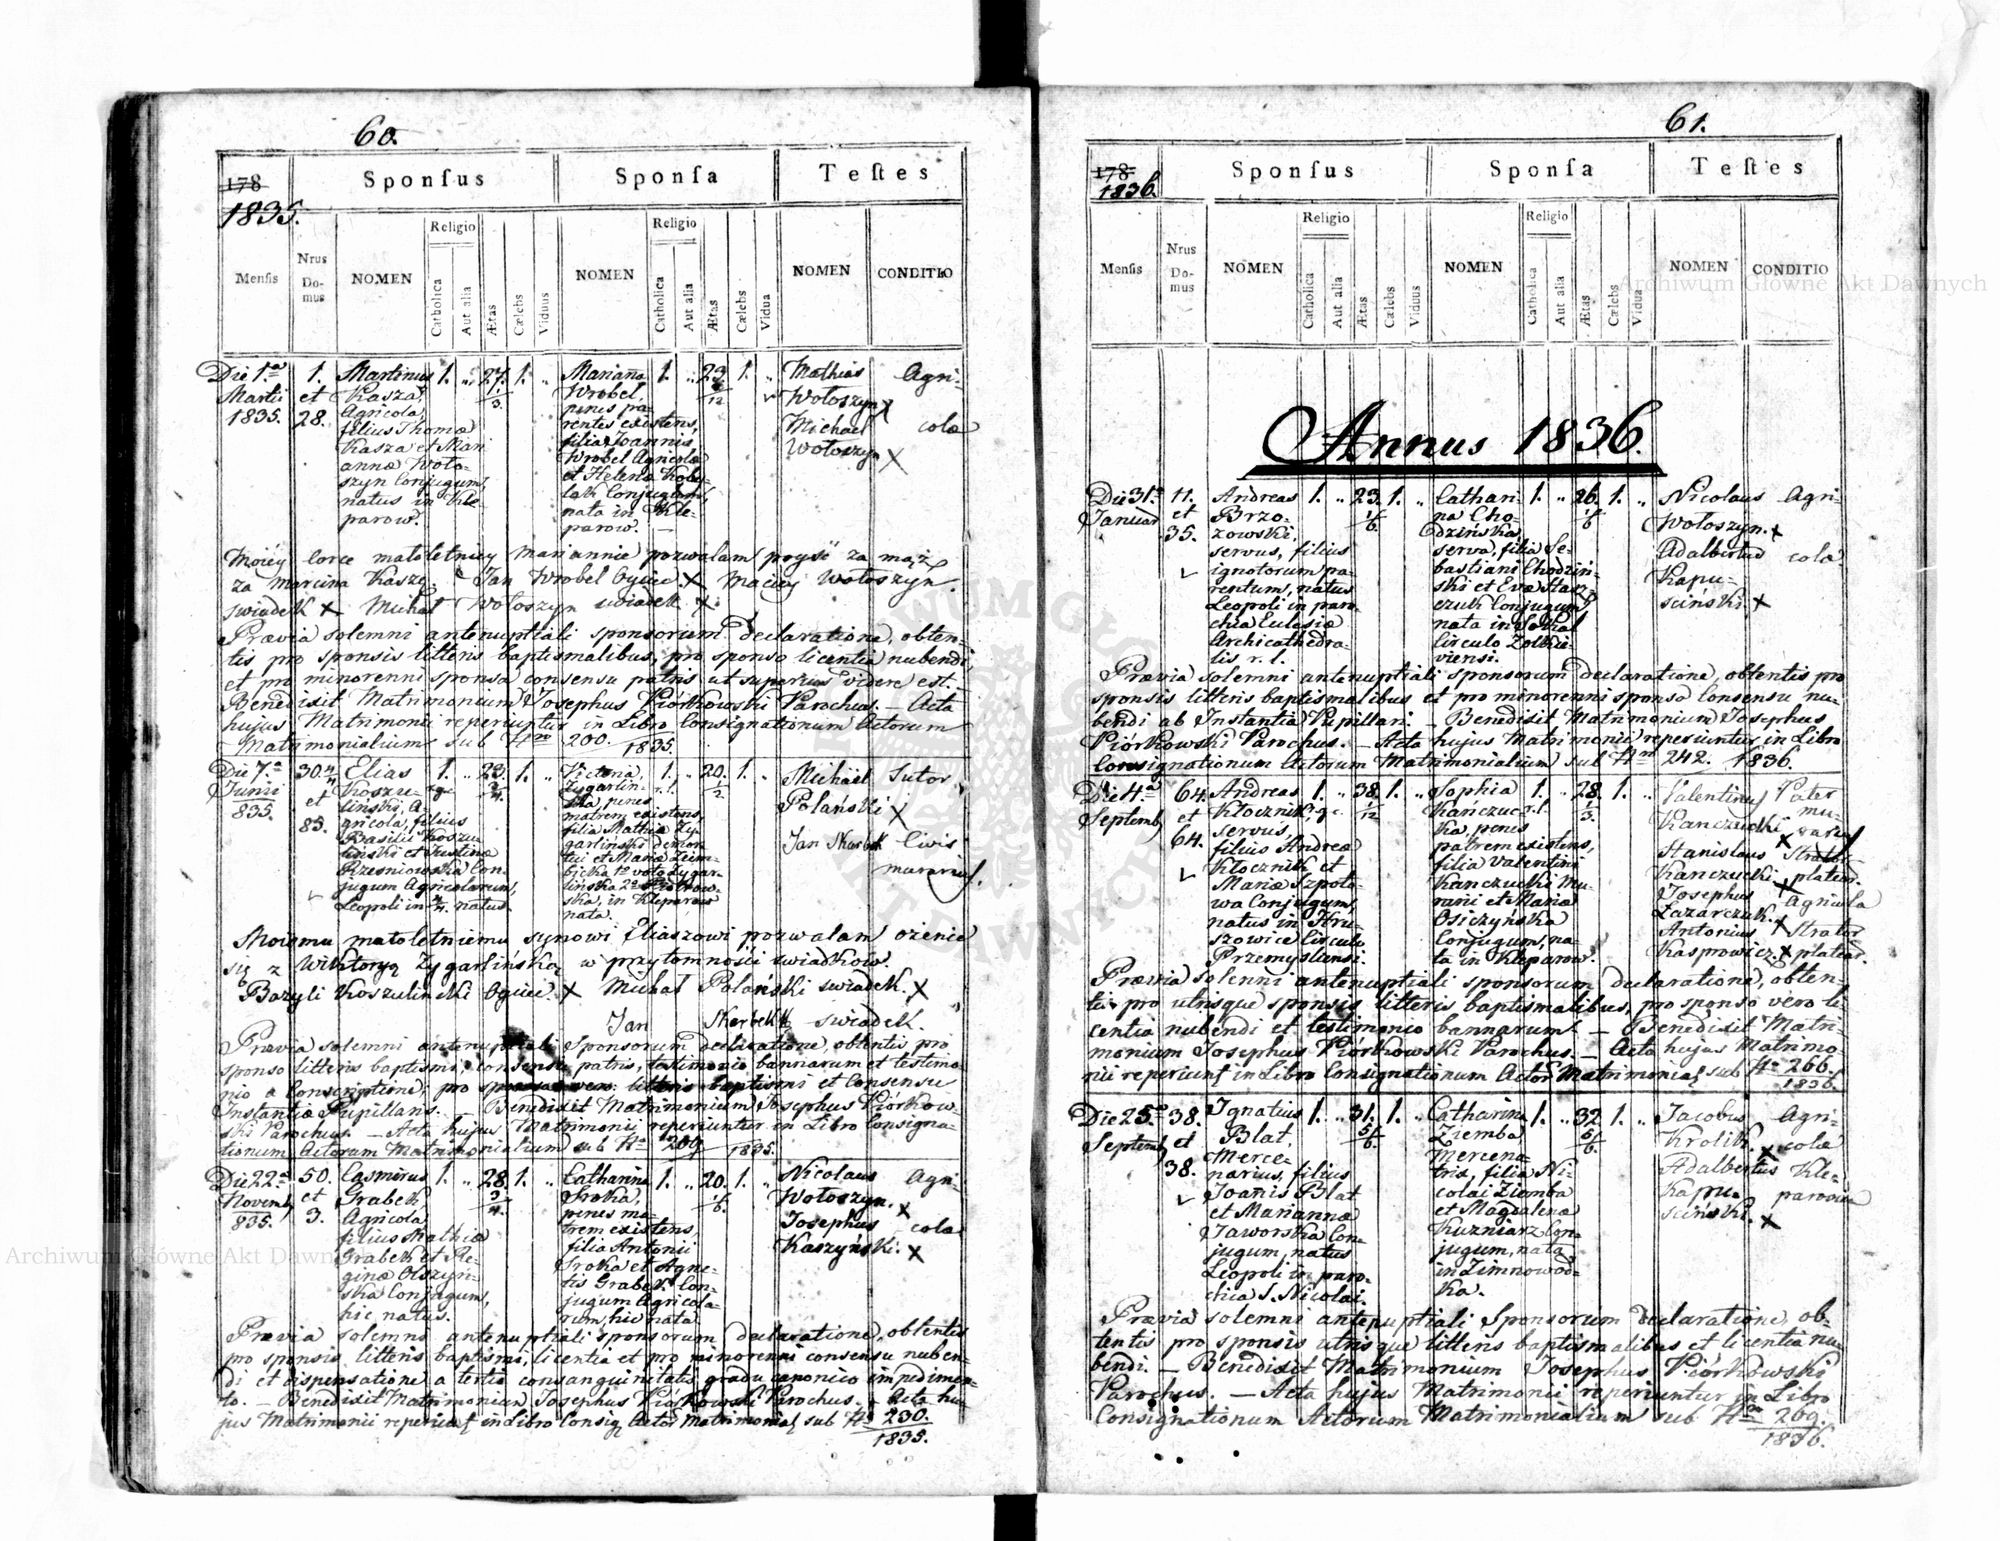 60.
178
1835.
Sponſus
Sponſa
Teſtes
Menſis
Nrus Do- mus
NOMEN
Religio
Catholica
Aut alia
Ætas
Cælebs
Viduus
NOMEN
Religio
Catholica
Aut alia
Ætas
Cælebs
Vidua
NOMEN
CONDITIO
Die 1ª
Martii
1835.
1.
et
28.
Martinus
Kasza,
Agricola,
filius Thomæ
Kasza et Mari
annæ Woło-
szyn Conjugum,
natus in Kle-
parow.
1. „ 27. 1. „
1/3
Marianna
Wrobel,
penes pa-
rentes existens,
filia Joannis
Wrobel Agricolæ
et Helenæ
Conjugum,
nata in Kle-
parow. —
1. „ 23 1. „
Mathias
Wołoszyn X
Michael
Wołoszyn X
Agri-
colæ
Moiey corce małoletniey Mariannie pozwalam poyść za mąż
za Marcina Kaszę. Jan Wrobel Oyciec X Maciey Wołoszyn
swiadek X Michał Wołoszyn swiadek X.
Prævia solemni antenuptiali sponsorum declaratione, obten-
tis pro sponsis litteris baptismalibus, pro sponso licentia nubendi,
et pro minorenni sponsa consensu patris ut superius videre est. —
Benedixit Matrimonium Josephus Piórkowski Parochus. — Acta
hujus Matrimonii reperiuntur in Libro Consignationum Actorum
Matrimonialium sub Nro 200. 1835.
Die 7ª
Junii
835.
30.
et
85.
Elias
Koszu-
liński, A-
gricola, filius
Basilii Koszu
liński et Justinæ
Rzesniowska Con-
jugum Agricolarum,
Leopoli in natus.
1. „ 23. 1. „
Victoria
Zygarlin-
ska, penes
matrem existens,
filia Mathiæ Zy-
garliński demor-
tui et Mariæ Ziem-
bicka 1º voto Zygar-
lińska 2º Piotrow-
ska, in Kleparow
nata.
1. „ 20. 1. „
1/2
Michael
Polański X
Jan Skerbek
Sutor
Civis
murarius.
Moiemu małoletniemu synowi Eliaszowi pozwalam ożenić
się z Wiktoryą Zygarlińską w przytomności swiadkow.
Bazyli Koszuliński Oyciec. X Michał Polański swiadek. X
Jan Skerbek swiadek.
Prævia solemni antenuptiali Sponsorum declaratione, obtentis pro
sponso litteris baptismi, consensu patris, testimonio bannorum et testimo
nio a Conscriptione, pro sponsa vero litteris baptismi et Consensu
Instantiæ Pupillaris. — Benedixit Matrimonium Josephus Piórkow-
ski Parochus. — Acta hujus Matrimonii reperiuntur in Libro Consigna-
tionum Actorum Matrimonialium sub Nro 209 1835.
Die 22ª
Novemb
835.
50.
et
3.
Casimirus
Grabek
Agricola,
filius Mathiæ
Grabek et Re-
ginæ Olszyń-
ska Conjugum,
hic natus.
1. „ 28. 1. „
3/4.
Catharina
Sroka,
penes ma-
trem existens,
filia Antonii
Sroka et Agne-
tis Grabek Con-
jugum Agricola-
rum, hic nata.
1. „ 20. 1. „
1/6.
Nicolaus
Wołoszyn. X
Josephus
Kaszyński. X
Agri-
colæ
Prævia solemni antenuptiali sponsorum declaratione, obtentis
pro sponsis litteris baptismi, licentia et pro minorenni consensu nuben-
di et dispensatione a tertio consanguinitatis gradu canonico impedimen-
to. — Benedixit Matrimonium Josephus Piórkowski Parochus. — Acta hu-
jus Matrimonii reperiuntur in Libro Consig. Actor. Matrimonial sub Nro 230.
1835.
61.
178
1836.
Sponſus
Sponſa
Teſtes
Menſis
Nrus Do- mus
NOMEN
Religio
Catholica
Aut alia
Ætas
Cælebs
Viduus
NOMEN
Religio
Catholica
Aut alia
Ætas
Cælebs
Vidua
NOMEN
CONDITIO
Annus 1836.
Die 31ª
Januar
11.
et
35.
Andreas
Brzo-
zowski,
servus, filius
ignotorum pa-
rentum, natus
Leopoli in paro-
chia Ecclesiæ
Archicathedra-
lis r. l.
1. „ 23. 1. „
1/6.
Cathari-
na Cho-
dzińska,
serva, filia Se-
bastiani Chodziń-
ski et Evæ
Conjugum,
nata in Sokal
Circulo Zołkie-
viensi.
1. „ 26. 1. „
1/6.
Nicolaus
Wołoszyn. X
Adalbertus
Kapu-
sciński. X
Agri-
colæ
Prævia solemni antenuptiali sponsorum declaratione, obtentis pro
sponsis litteris baptismalibus et pro minorenni sponso Consensu nu-
bendi ab Instantia Pupillari. — Benedixit Matrimonium Josephus
Piórkowski Parochus. — Acta hujus Matrimonii reperiuntur in Libro
Consignationum Actorum Matrimonialium sub Nro 242. 1836.
Die 4ª
Septemb
64.
et
64.
Andreas
Kłocznik,
servus,
filius Andreæ
Kłocznik et
Mariæ Szpoto-
wa Conjugum,
natus in Hru-
szowice Circulo
Przemysliensi.
1. „ 38. 1. „
1/12
Sophia
Kańczuc-
ka, penes
patrem existens,
filia Valentini
Kanczucki Mu-
rarii et Mariæ
Osiczyńska
Conjugum, na-
ta in Kleparow.
1. „ 28. 1. „
1/3.
Valentinus
Kanczucki X
Stanislaus
Kanczucki X
Josephus
Łazarczuk. X
Antonius
Kasprowicz. X
Pater
mu-
rarius
Strator
platear.
Agricola
Strator
platear.
Prævia solemni antenuptiali sponsorum declaratione, obten-
tis pro utrisque sponsis litteris baptismalibus, pro sponso vero li-
centia nubendi et testimonio bannorum. — Benedixit Matri-
monium Josephus Piórkowski Parochus. — Acta hujus Matrimo-
nii reperiunt in Libro Consignationum Actor. Matrimonial sub Nro 266.
1836.
Die 25ª
Septemb
38.
et
38.
Ignatius
Blat,
Merce-
narius, filius
Joanis Blat
et Mariannæ
Jaworska Con-
jugum, natus
Leopoli in paro-
chia S. Nicolai.
1. „ 31. 1. „
5/6.
Catharina
Ziemba
Mercena-
ria, filia Ni-
colai Ziemba
et Magdalenæ
Kuzniarz Con-
jugum, nata
in Zimnowod-
ka.
1. „ 32. 1. „
5/6.
Jacobus
Krolik. X
Adalbertus
Kapu-
sciński. X
Agri-
colæ
Kle-
paroviæ
Prævia solemni antenuptiali Sponsorum declaratione, ob-
tentis pro sponsis utrisque litteris baptismalibus et licentia nu-
bendi. — Benedixit Matrimonium Josephus Piórkowski
Parochus. — Acta hujus Matrimonii reperiuntur in Libro
Consignationum Actorum Matrimonialium sub Nro 269.
1836.
Archiwum Główne Akt Dawnych
Archiwum Główne Akt Dawnych
ARCHIWUM GŁÓWNE AKT DAWNYCH